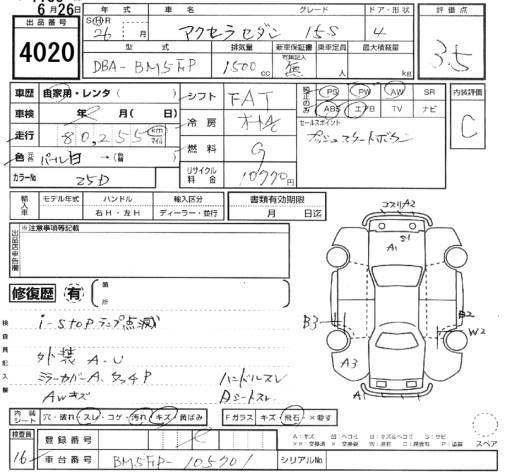 6月26日
出品番号
4020
年式 車名 グレード ドア・形状
S H R 26 年 月 アクセラセダン 15S 4
型式 排気量 新車保証書 乗車定員 最大積載量
DBA-BM5FP 1500 cc 無 人 kg
評価点
3.5
車歴 自家用・レンタ( )
車検 年 月
走行 80,255 km マイル
色 パール白 →( )
カラーNo 25D
シフト FAT
冷房
燃料 G
リサイクル料金 10770円
PS PW AW SR
ABS エアB TV ナビ
セールスポイント
プッシュスタートボタン
内装評価
C
輸入車 モデル年式 ハンドル 輸入区分
年 右H・左H ディーラー・並行
書類有効期限
月 日迄
出品店申告欄
※注意事項等記載
修復歴 有 箇所
検査員記入欄
i-stop ランプ点滅
外装 A-U
ミラーカバーA、タッチP
AWキズ
ハンドルスレ
Dシートスレ
コスリA2
S1
A1
B3
B2
W2
A3
A1
内装シート 穴・破れ・スレ・コゲ・汚れ・キズ・黄ばみ
Fガラス キズ・飛石・×要す
スペア
検査員
16
登録番号
車台番号 BM5FP-105701
シリアルNo